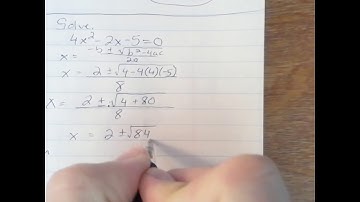 Solve.
4x²-2x-5=0
x = -b ± √b²-4ac / 2a
x = 2 ± √4-4(4)(-5) / 8
x = 2 ± √4+80 / 8
x = 2 ± √84